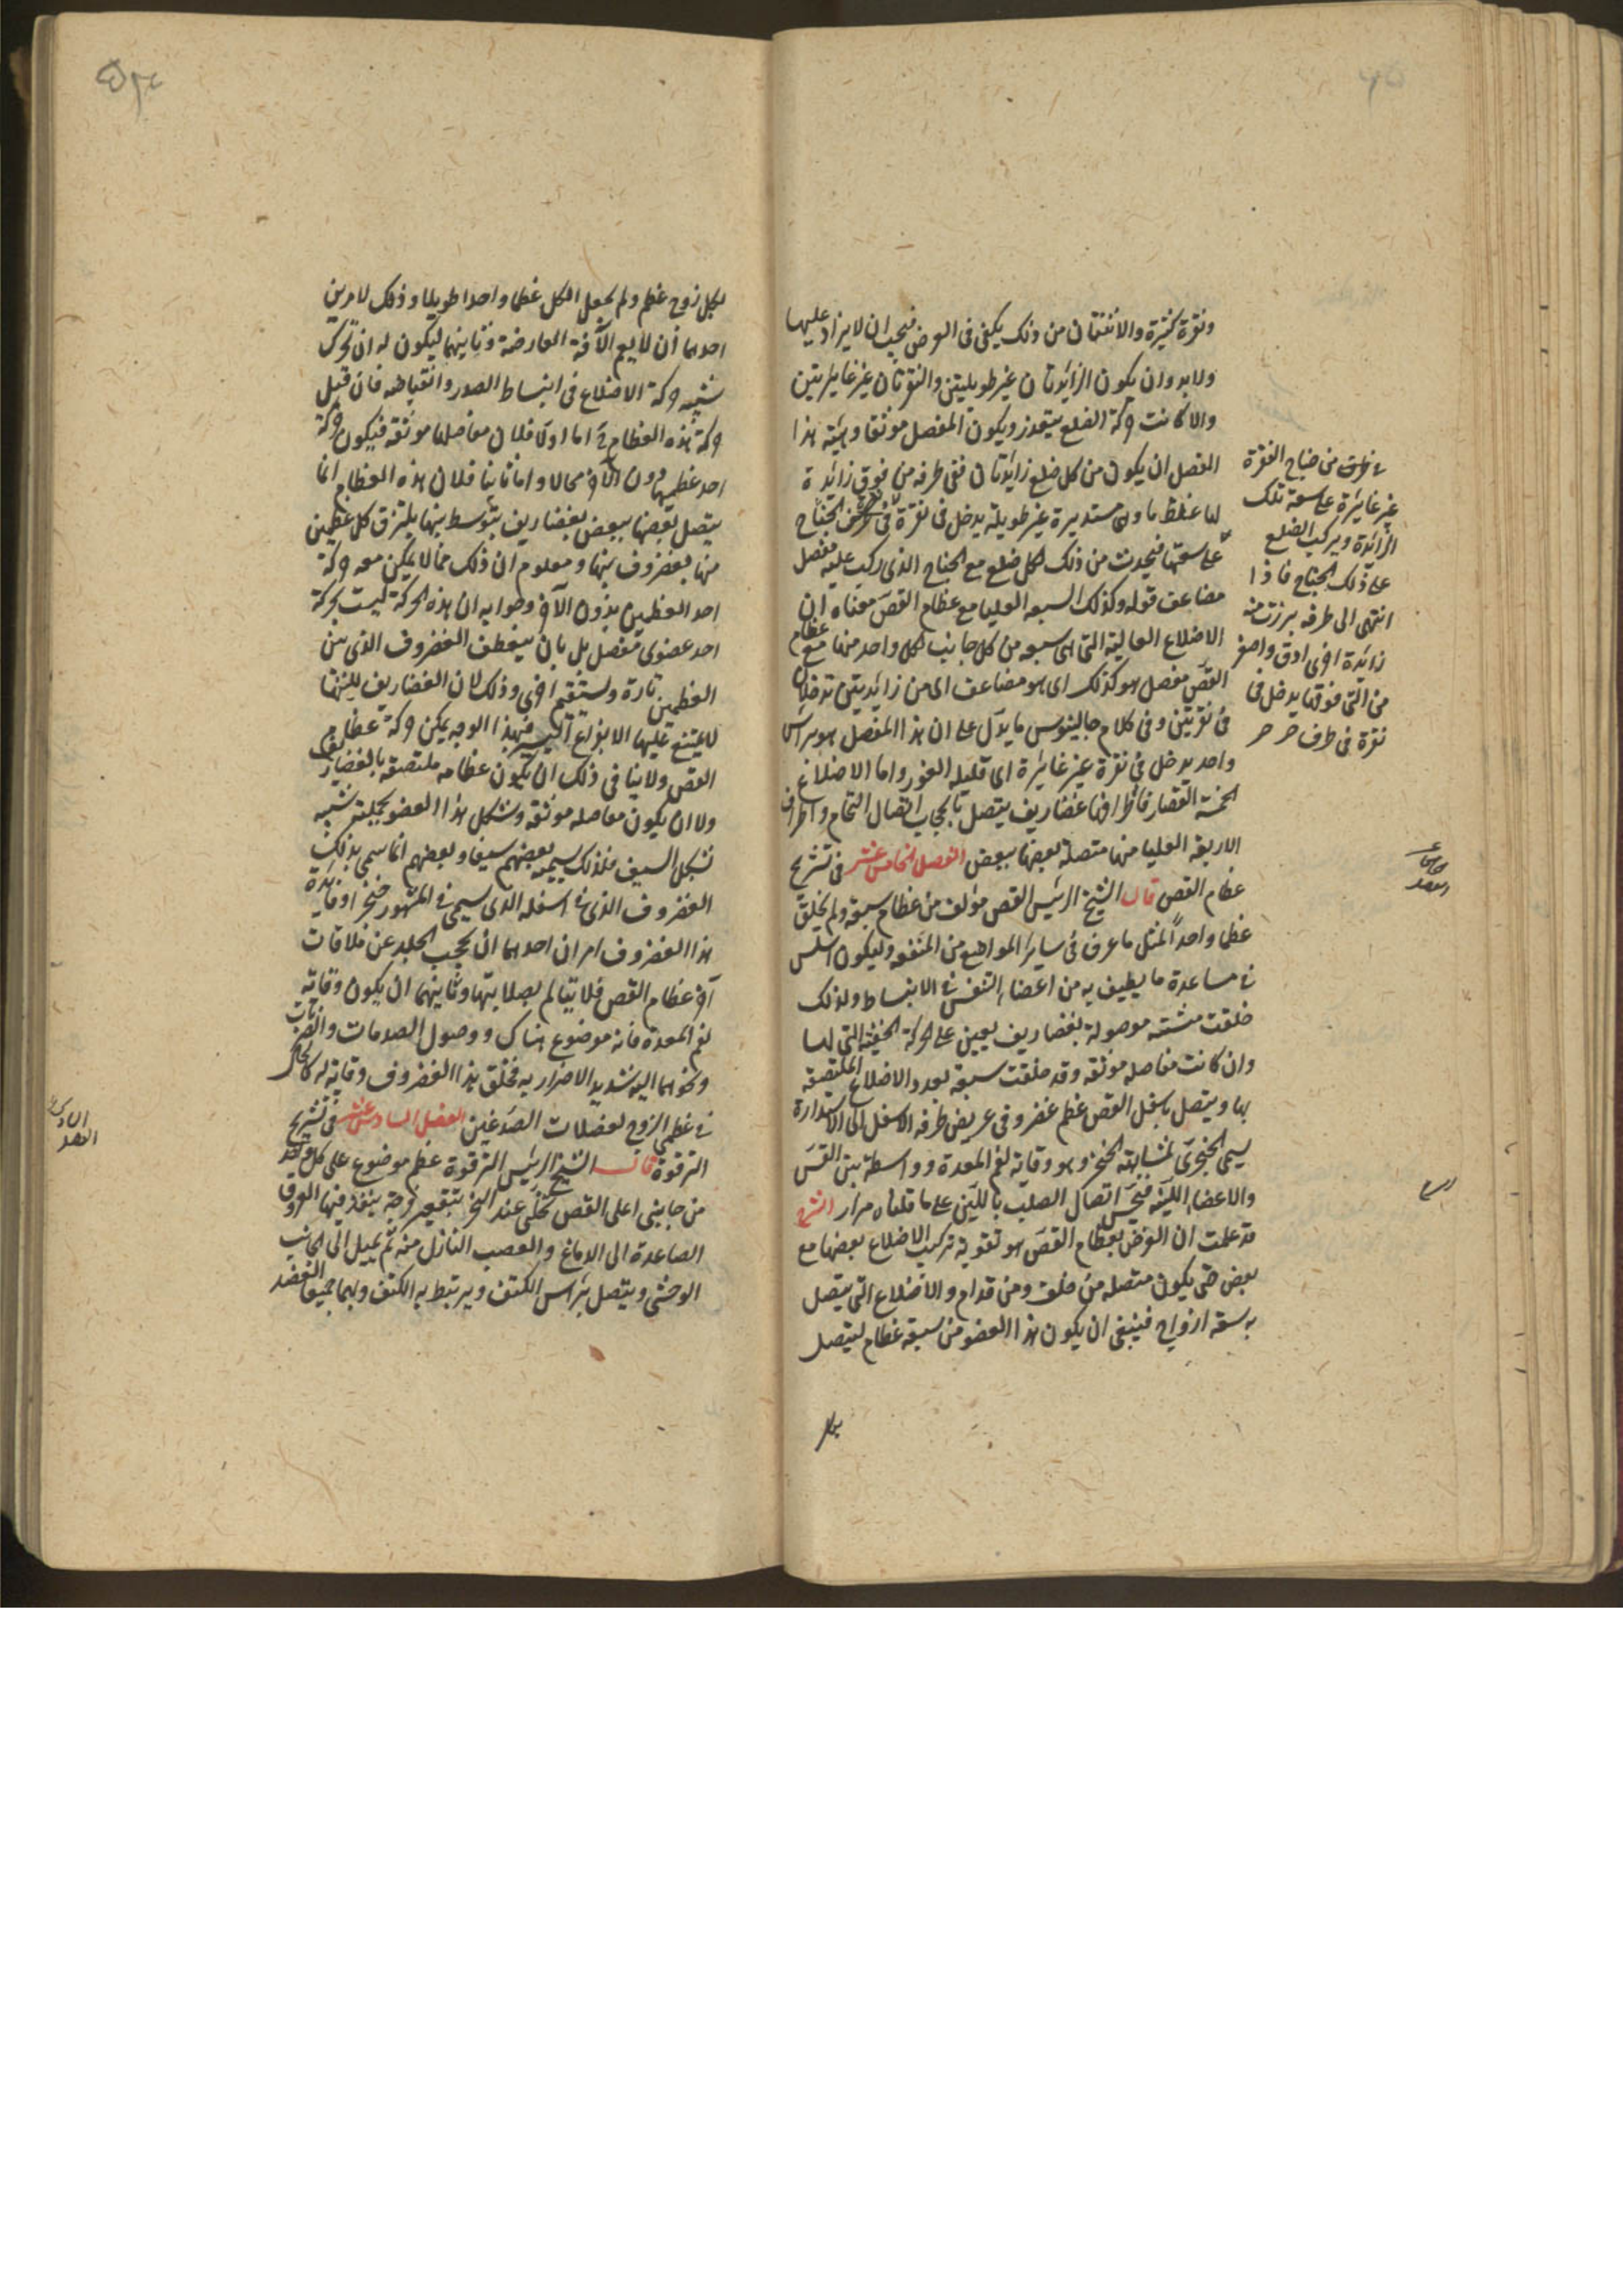 ونقرة كثيرة والاثنتان من ذلك يكفى فى الغرض فيجب ان لا يزاد عليها
ولا بد وان يكون الزائدتان غير طويلتين والنقرتان غير غايرتين
والا كانت حركة الضلع متعذر ويكون المفصل موثقا وهيئة هذا
المفصل ان يكون من كل ضلع زائدتان ففى طرفه من فوق زائدة
لها غلظ ما وهى مستديرة غير طويلة يدخل فى نقرة فى الجناح
على سعتها فيحدث من ذلك لكل ضلع مع الجناح الذى ركب عليه مفصل
مضاعف قوله وكذلك السبعه العليا مع عظام القص معناه ان
الاضلاع العالية التى هى سبعه من كل جانب لكل واحد منها مع عظام
القص مفصل هو كذلك اى هو مضاعف اى من زائدتين تدخلان
فى نقرتين وفى كلام جالينوس ما يدل على ان هذا المفصل هو براس
واحد يدخل فى نقرة غير غايرة اى قليله الغور واما الاضلاع
الخمسة القصار فاطرافها غضاريف يتصل بالحجاب اتصال التحام واطراف
الاربعه العليا منها متصلة بعضها ببعض الفصل الخامس عشر فى تشريح
عظام القص قال الشيخ الرئيس القص مؤلف من عظام سبعة ولم يخلق
عظما واحدا لمثل ما عرف فى ساير المواضع من المنفعه وليكون اسلس
فى مساعدة ما يطيف به من اعضاء التنفس فى الانبساط ولذلك
خلقت هشة موصولة بغضاريف يعين على الحركة الخفية التى لها
وان كانت مفاصله موثقه وقد خلقت سبعة بعدد الاضلاع الملتصقة
بها ويتصل باسفل القص عظم غضروفى عريض طرفه الاسفل الى الاستدارة
يسمى الخنجرى لمشابهته الخنجر وهو وقاية لفم المعدة وواسطة بين القص
والاعضاء اللينة فيحسن اتصال الصلب باللين على ما قلناه مرار الشرح
قد علمت ان الغرض بعظام القص هو تقوية تركيب الاضلاع بعضها مع
بعض حتى يكون متصله من خلف ومن قدام والاضلاع التى يتصل
به سبعة ازواج فينبغى ان يكون هذا العضو من سبعة عظام ليتصل
بكل
من جناح الفقرة
غير غايرة على سعة تلك
الزائدة ويركب الضلع
على ذلك الجناح فاذا
انتهى الى طرفه برزت منه
زائدة اخرى ادق واصغر
من التى فوقها يدخل فى
نقرة فى طرف
لكل زوج عظم ولم يجعل الكل عظما واحدا طويلا وذلك لامرين
احدهما أن لا يعم الآفة العارضة وثانيهما ليكون له ان تحرك
شبيه حركة الاضلاع فى انبساط الصدر وانقباضه فان قيل
حركة هذه العظام اما اولا فلان مفاصلها موثقه فيكون حركة
احد عظميها دون الآخر محالا واما ثانيا فلان هذه العظام انما
يتصل بعضها ببعض بغضاريف يتوسط بينها يلتزق كل عظمين
منها بغضروف بينهما ومعلوم ان ذلك مما لا يمكن معه حركة
احد العظمين بدون الآخر وجوابه ان هذه الحركة ليست بحركة
احد عضوى مفصل بل بان ينعطف الغضروف الذى بين
العظمين تارة ويستقيم اخرى وذلك لان الغضاريف للينها
لا يمتنع عليها الانواع اليسير فبهذا الوجه يمكن حركة عظام
القص ولا ينافى ذلك ان يكون عظامه ملتصقه بالغضاريف
ولا ان يكون مفاصله موثقه وشكل هذا العضو بجملته شبيه
بشكل السيف فلذلك يسميه بعضهم سيفا وبعضهم انما سمى بذلك
الغضروف الذى فى اسفله الذى يسمى فى المشهور خنجرا وفايدة
هذا الغضروف امران احدهما ان يحجب الجلد عن ملاقات
آخر عظام القص فلا يتألم بصلابتها وثانيهما ان يكون وقاية
لفم المعدة فانه موضوع هناك ووصول الصدمات والضربات
ونحوهما اليه شديد الاضرار به فخلق هذا الغضروف وقاية له كالحال
فى عظمى الزوج لعضلات الصدغين الفصل السادس عشر فى تشريح
الترقوة قال الشيخ الرئيس الترقوة عظم موضوع على كل واحد
من جانبى اعلى القص يتخلى عند النحر بتقعيره فرجة ينفذ فيها العروق
الصاعدة الى الدماغ والعصب النازل منه ثم يميل الى الجانب
الوحشى ويتصل براس الكتف ويرتبط به الكتف وبهما جميعا العضد